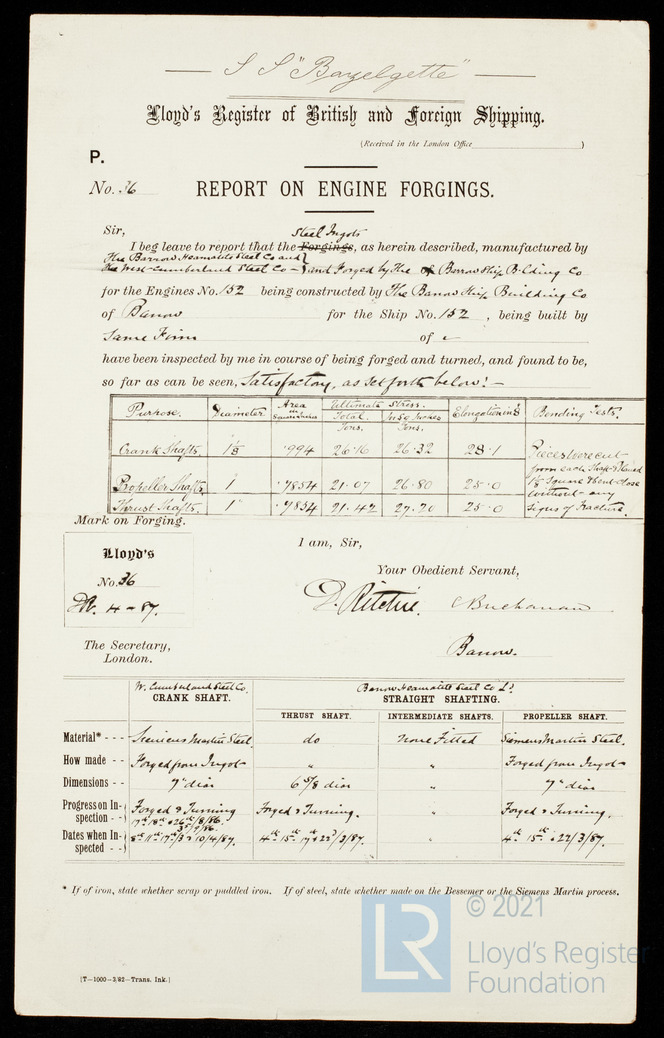 S S "Bazelgette"
Lloyd's Register of British and Foreign Shipping.
(Received in the London Office )
P.
No. 36 REPORT ON ENGINE FORGINGS.
Sir,
Steel Ingots
I beg leave to report that the Forgings, as herein described, manufactured by
The Barrow Heamatite Steel Co and
the West Cumberland Steel Co - and Forged by The of Barrow Ship Bilding Co
for the Engines No. 152 being constructed by The Barrow Ship Building Co
of Barrow for the Ship No. 152 , being built by
Same Firm of "
have been inspected by me in course of being forged and turned, and found to be,
so far as can be seen, Satisfactory, as set forth below:-
Purpose. Diameter Area in Square Inches Ultimate Stress. Total. Tons. In Sq Inches Tons. Elongation in 8 Bending Tests.
Crank Shafts. 1 1/8 .994 26.16 26.32 28.1 Pieces were cut
from each Shaft planed
Propeller Shafts. 1 .7854 21.07 26.80 25.0 1 1/8 Square & bent close
without any
Thrust Shafts. 1" .7854 21.42 27.20 25.0 signs of fracture.
Mark on Forging.
Lloyd's
No. 36
DR. 4-87.
I am, Sir,
Your Obedient Servant,
D. Ritchie. Buchanan
Barrow.
The Secretary,
London.
W. Cumberland Steel Co. Barrow Heamatite Steel Co Ld.
CRANK SHAFT. STRAIGHT SHAFTING.
THRUST SHAFT. INTERMEDIATE SHAFTS. PROPELLER SHAFT.
Material* - - - Siemens Martin Steel. do None Fitted Siemens Martin Steel.
How made - - Forged from Ingot " " Forged from Ingot
Dimensions - - 7" dia 6 5/8 dia " 7" dia
Progress on Inspection - - Forged & Turning Forged & Turning. " Forged & Turning.
17th 18th & 26th/8/86.
3rd/9/86.
Dates when Inspected - - 8th 11th 17th/3 & 10/4/87. 4th 15th 17 & 22/3/87. " 4th 15th & 22/3/87.
* If of iron, state whether scrap or puddled iron. If of steel, state whether made on the Bessemer or the Siemens Martin process.
[T—1000—3/82—Trans. Ink.]
LR
© 2021
Lloyd's Register
Foundation